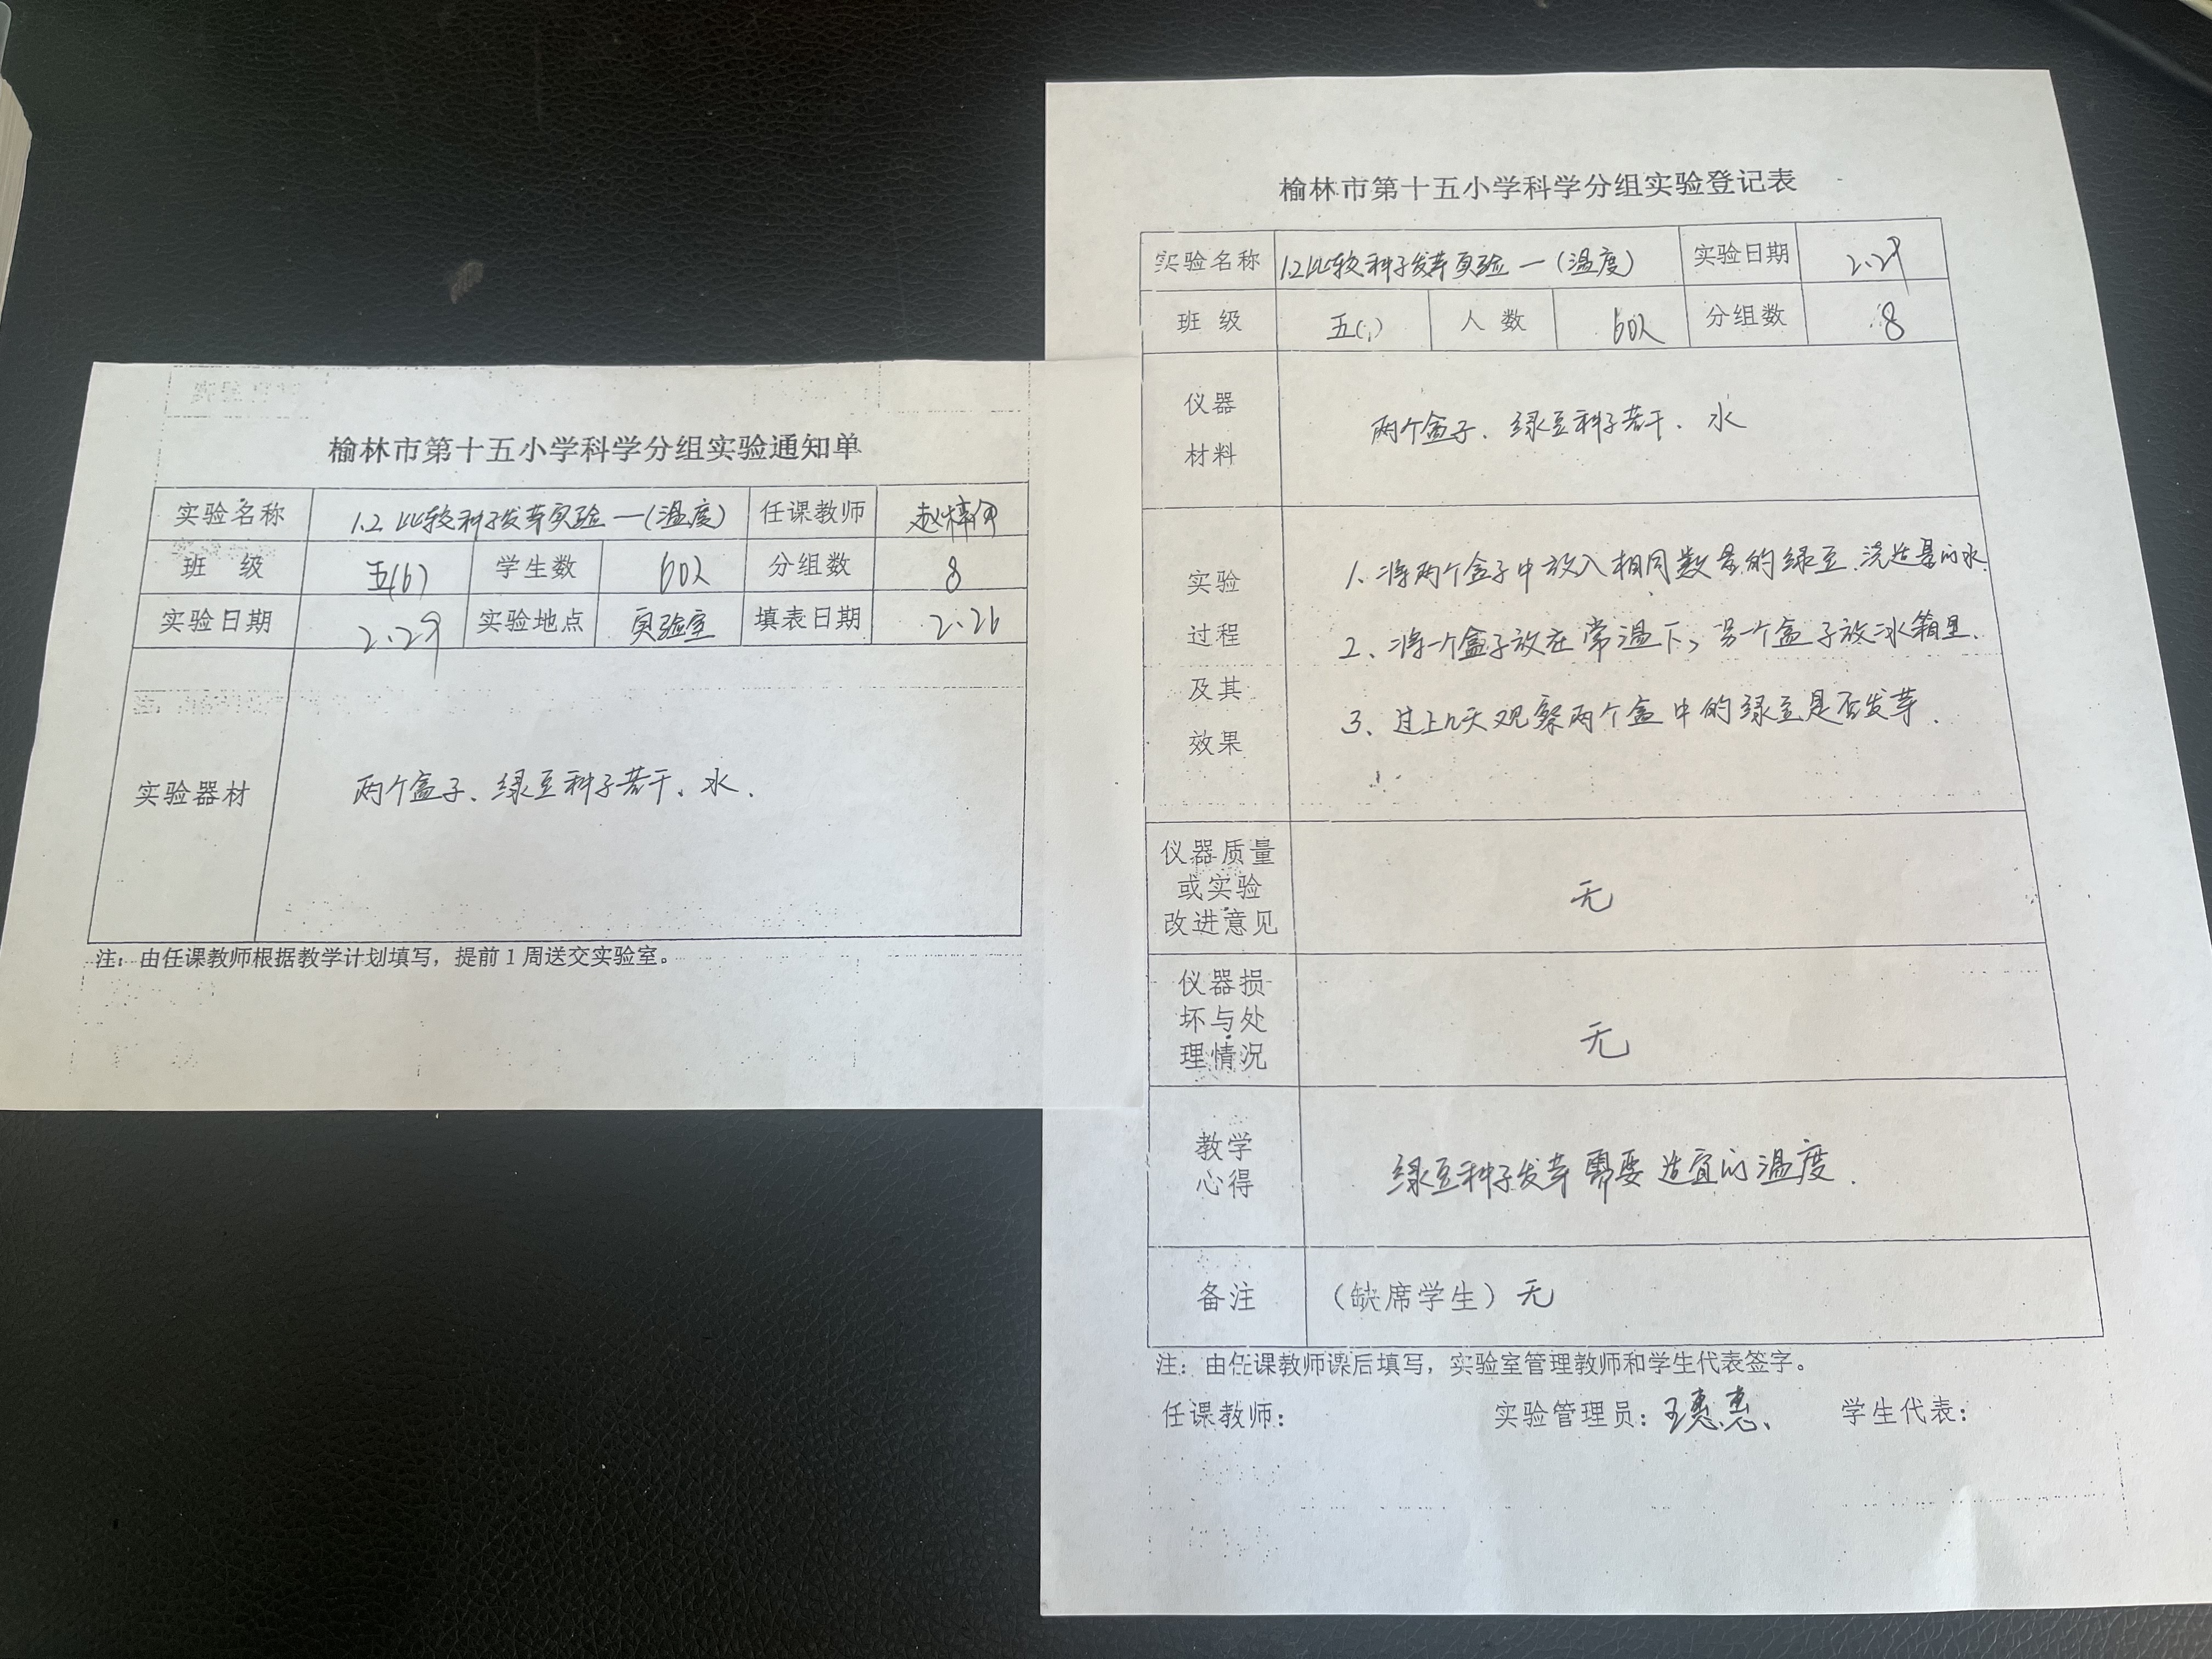 榆林市第十五小学科学分组实验通知单
实验名称 1.2 比较种子发芽实验一(温度) 任课教师
班 级 五(6) 学生数 60人 分组数 8
实验日期 2.29 实验地点 实验室 填表日期 2.26
实验器材 两个盒子、绿豆种子若干、水.
注:由任课教师根据教学计划填写,提前1周送交实验室。
榆林市第十五小学科学分组实验登记表
实验名称 1.2比较种子发芽实验一(温度) 实验日期 2.29
班 级 五( ) 人 数 60人 分组数 8
仪器
材料
两个盒子、绿豆种子若干、水
实验
过程
及其
效果
1、将两个盒子中放入相同数量的绿豆.浇适量的水.
2、将一个盒子放在常温下,另一个盒子放冰箱里.
3、过上几天观察两个盒中的绿豆是否发芽.
仪器质量
或实验
改进意见
无
仪器损
坏与处
理情况
无
教学
心得
绿豆种子发芽需要适宜的温度.
备注 (缺席学生)无
注:由任课教师课后填写,实验室管理教师和学生代表签字。
任课教师: 实验管理员:王惠惠、 学生代表: